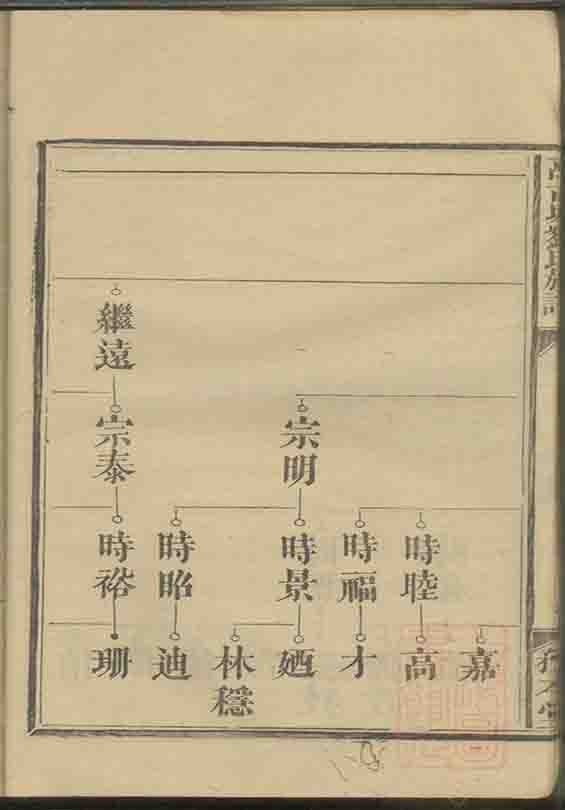 氏族譜
繼遠
宗明
宗泰
時睦
時福
時景
時昭
時裕
嘉
高
才
廼
林穩
迪
珊